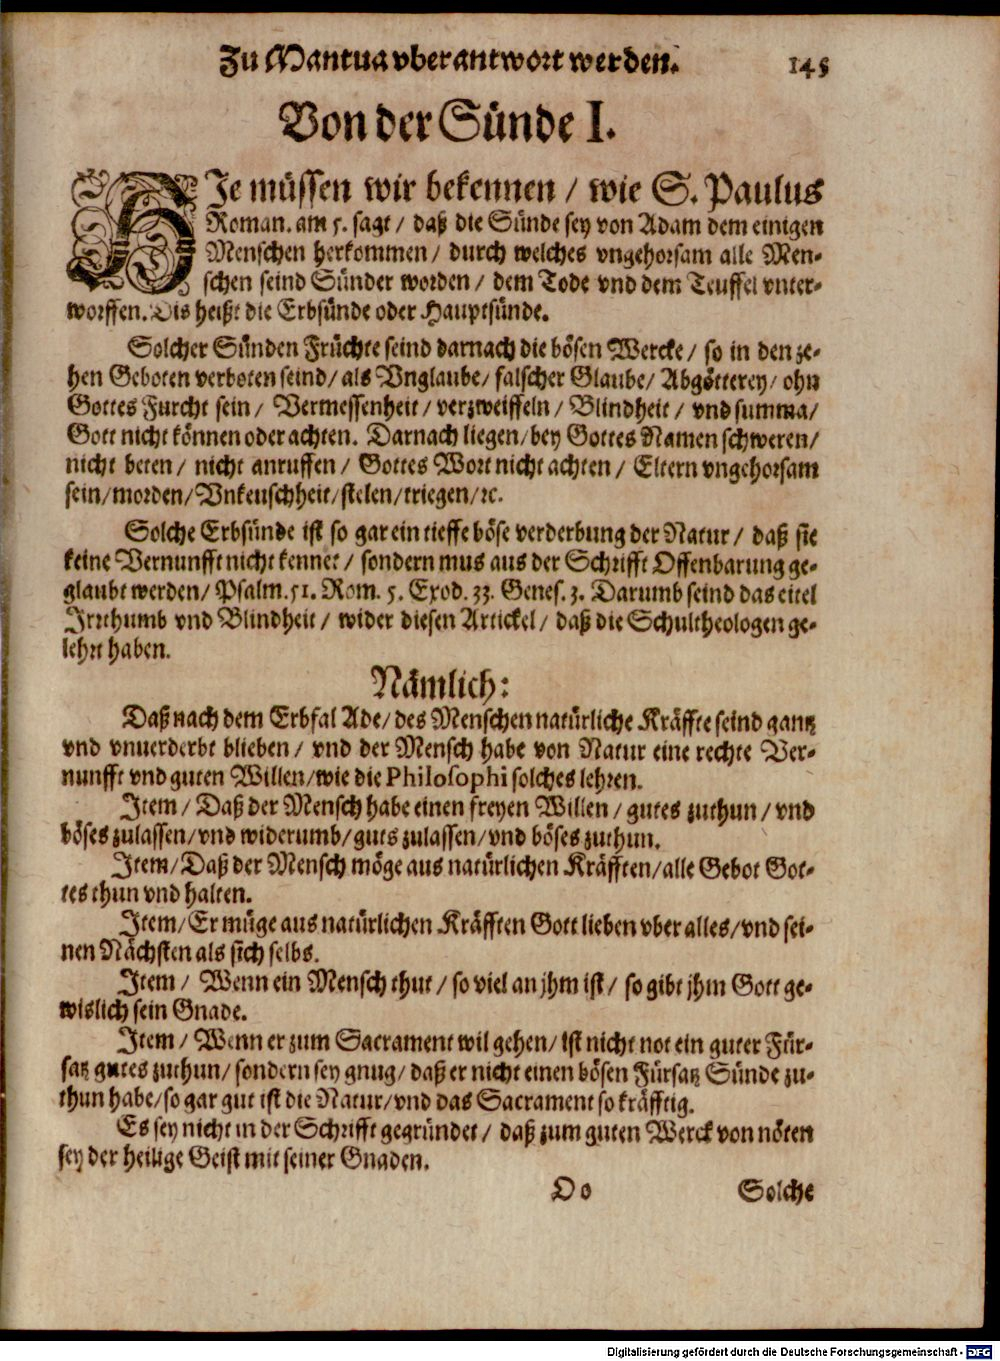 Zu Mantua vberantwort werden. 145
Von der Sünde I.
HJe müssen wir bekennen / wie S. Paulus
Roman. am 5. sagt / daß die Sünde sey von Adam dem einigen
Menschen herkommen / durch welches vngehorsam alle Men-
schen seind Sünder worden / dem Tode vnd dem Teuffel vnter-
worffen. Dis heißt die Erbsünde oder Hauptsünde.
Solcher Sünden Früchte seind darnach die bösen Wercke / so in den ze-
hen Geboten verboten seind / als Vnglaube / falscher Glaube / Abgötterey / ohn
Gottes Furcht sein / Vermessenheit / verzweiffeln / Blindheit / vnd summa /
Gott nicht können oder achten. Darnach liegen / bey Gottes Namen schweren /
nicht beten / nicht anruffen / Gottes Wort nicht achten / Eltern vngehorsam
sein / morden / Vnkeuschheit / stelen / triegen / ꝛc.
Solche Erbsünde ist so gar ein tieffe böse verderbung der Natur / daß sie
keine Vernunfft nicht kennet / sondern mus aus der Schrifft Offenbarung ge-
glaubt werden / Psalm. 51. Rom. 5. Exod. 33. Genes. 3. Darumb seind das eitel
Irrthumb vnd Blindheit / wider diesen Artickel / daß die Schultheologen ge-
lehrt haben.
Nämlich:
Daß nach dem Erbfal Ade / des Menschen natürliche Kräffte seind gantz
vnd vnuerderbt blieben / vnd der Mensch habe von Natur eine rechte Ver-
nunfft vnd guten Willen / wie die Philosophi solches lehren.
Item / Daß der Mensch habe einen freyen Willen / gutes zuthun / vnd
böses zulassen / vnd widerumb / guts zulassen / vnd böses zuthun.
Item / Daß der Mensch möge aus natürlichen Kräfften / alle Gebot Got-
tes thun vnd halten.
Item / Er müge aus natürlichen Kräfften Gott lieben vber alles / vnd sei-
nen Nächsten als sich selbs.
Item / Wenn ein Mensch thut / so viel an jhm ist / so gibt jhm Gott ge-
wislich sein Gnade.
Item / Wenn er zum Sacrament wil gehen / ist nicht not ein guter Für-
satz gutes zuthun / sondern sey gnug / daß er nicht einen bösen Fürsatz Sünde zu-
thun habe / so gar gut ist die Natur / vnd das Sacrament so kräfftig.
Es sey nicht in der Schrifft gegründet / daß zum guten Werck von nöten
sey der heilige Geist mit seiner Gnaden.
Oo Solche
Digitalisierung gefördert durch die Deutsche Forschungsgemeinschaft - DFG